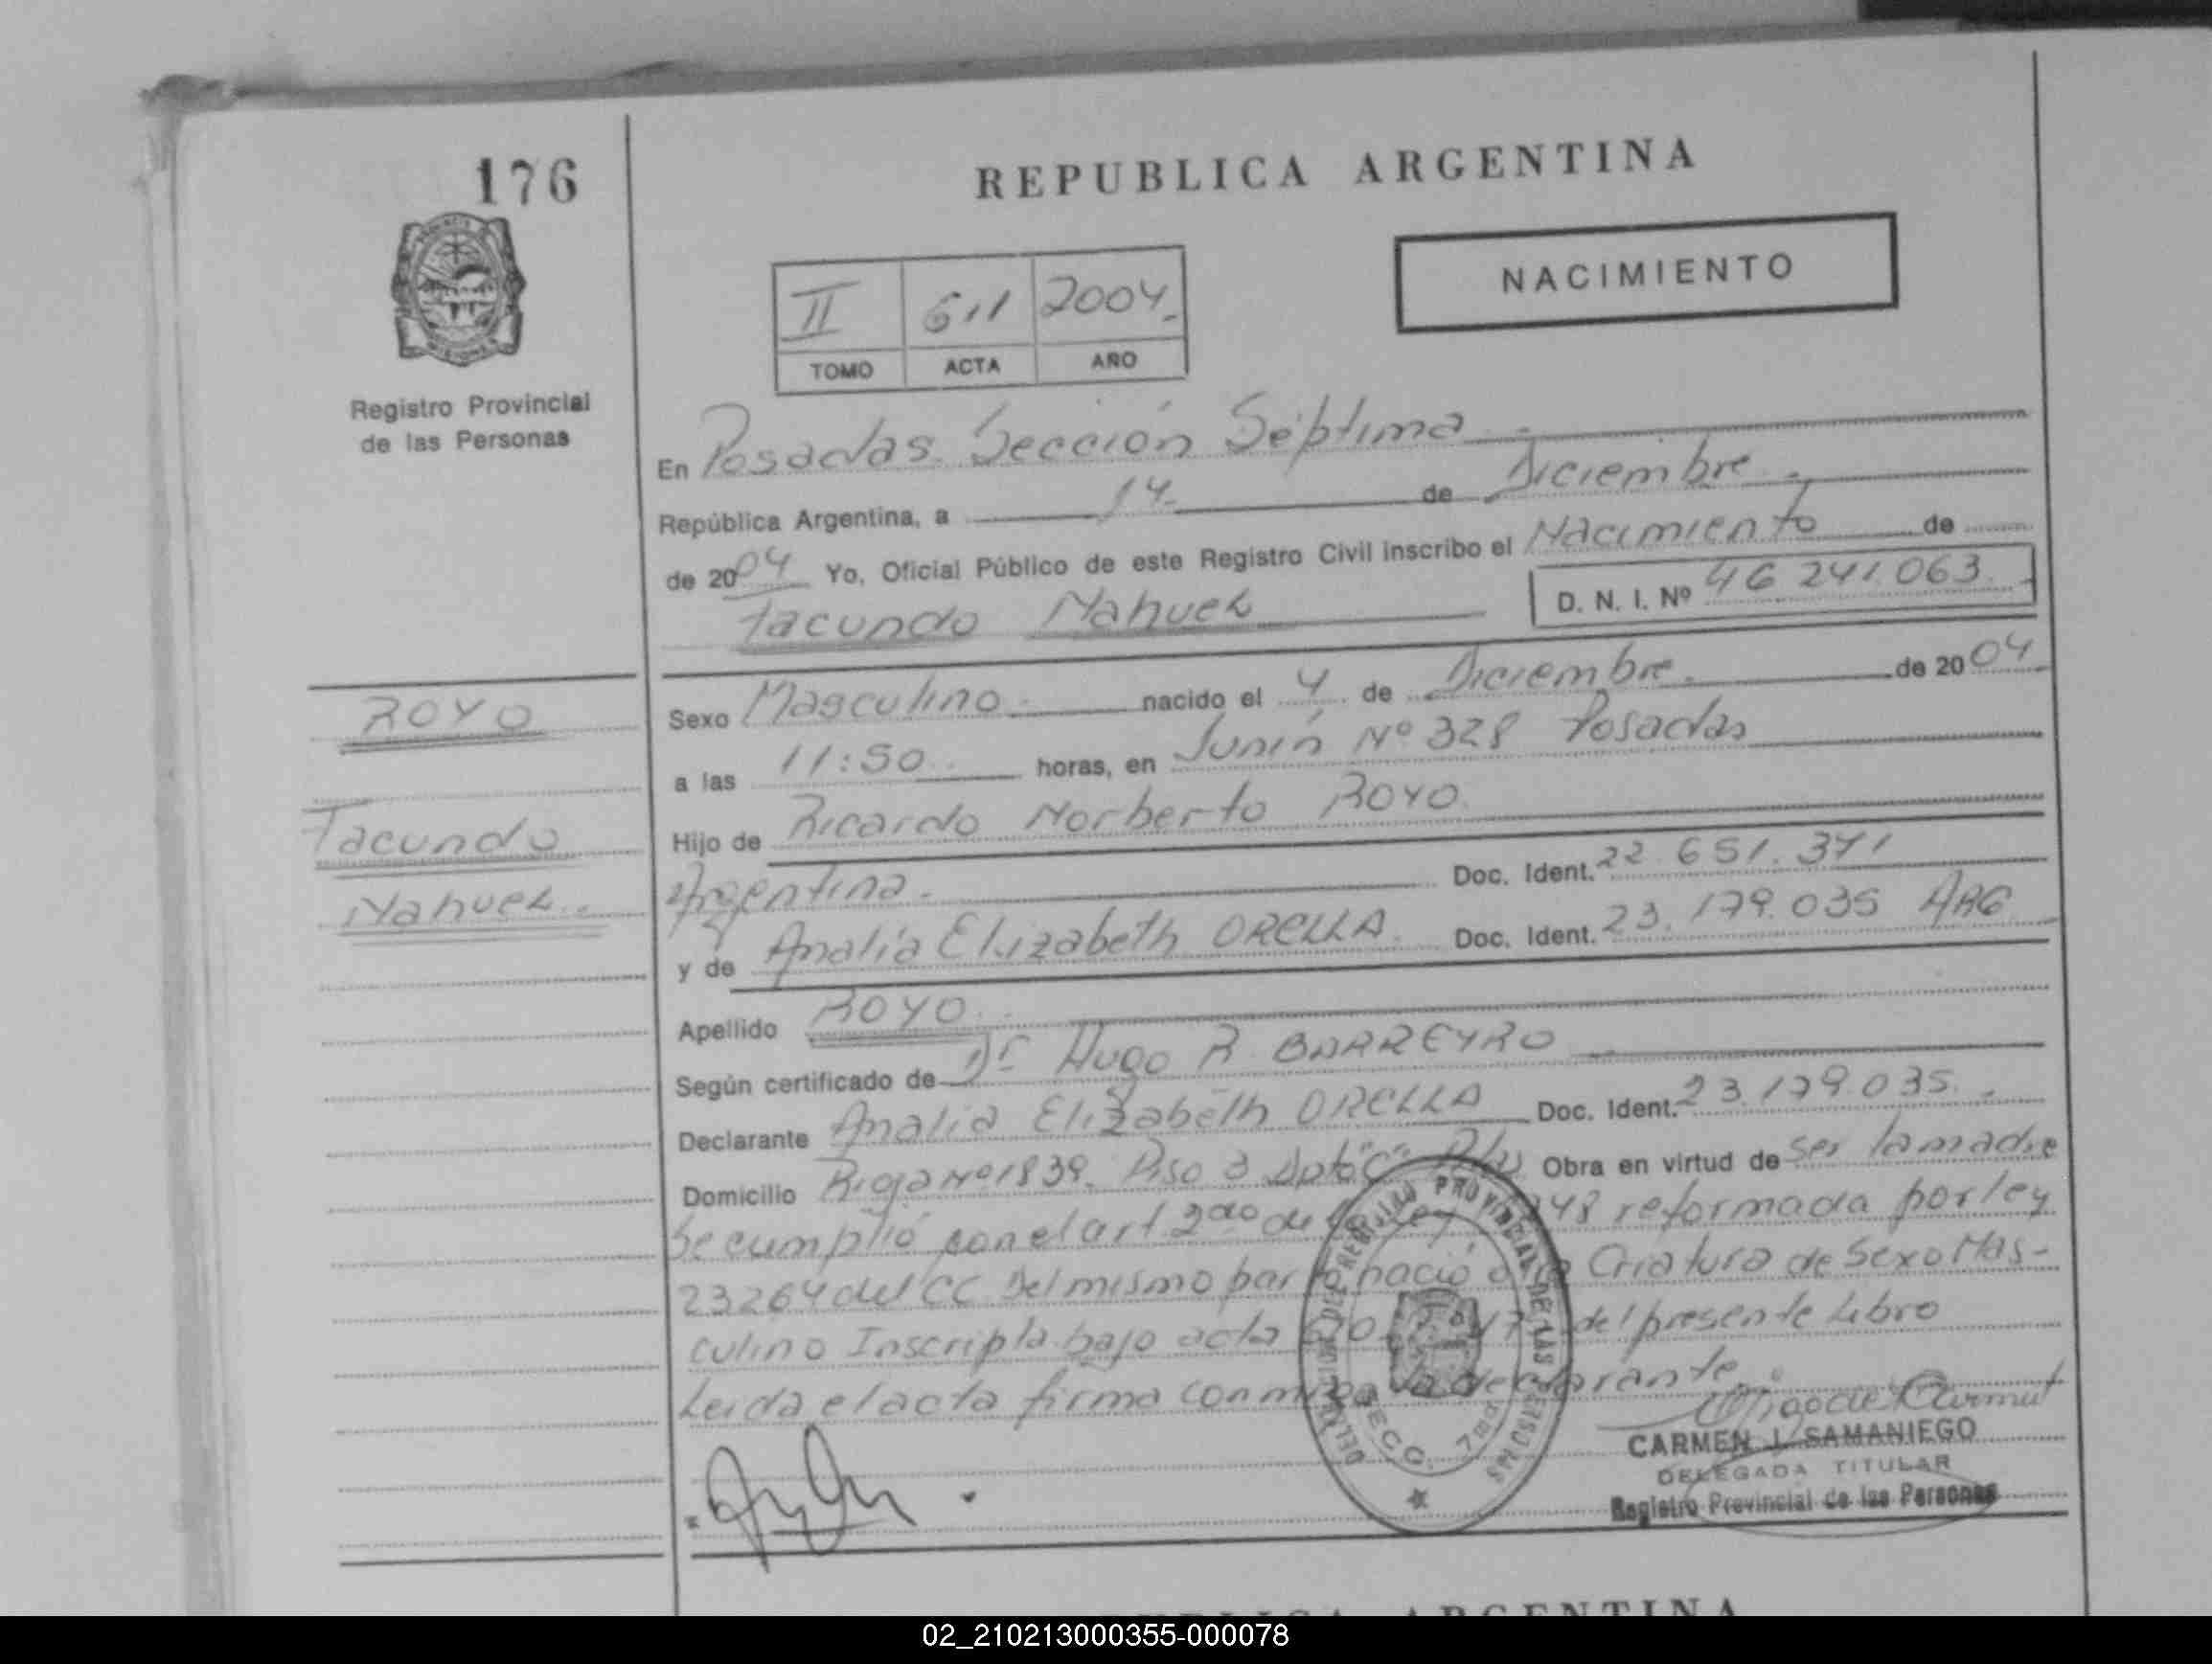 176
REPUBLICA ARGENTINA
NACIMIENTO
II 611 2004
TOMO ACTA AÑO
Registro Provincial
de las Personas
En Posadas Sección Séptima
República Argentina, a 14 de Diciembre
de 2004 Yo, Oficial Público de este Registro Civil inscribo el Nacimiento de
Facundo Nahuel D. N. I. Nº 46 241.063
ROYO
Facundo
Nahuel
Sexo Masculino nacido el 4 de Diciembre de 2004
a las 11:50 horas, en Junín Nº 328 Posadas
Hijo de Ricardo Norberto ROYO
Argentina. Doc. Ident. 22 651.371
y de Analía Elizabeth ORELLA Doc. Ident. 23.179.035 ARG
Apellido ROYO
Según certificado de Dr Hugo R. BARREYRO
Declarante Analia Elizabeth ORELLA Doc. Ident. 23.179.035
Domicilio Rioja Nº 1839. Piso 3 Dpto "C" Obra en virtud de ser la madre
Se cumplió con el art 2do de Ley reformada por ley
23264 del CC Del mismo parto nació otra Criatura de Sexo Mas-
culino Inscripta bajo acta 610 del presente Libro
Leida el acta firma conmigo la declarante.
DEL REGISTRO PROVINCIAL DE LAS PERSONAS
SECC. 7ma
CARMEN J. SAMANIEGO
DELEGADA TITULAR
Registro Provincial de las Personas
REPUBLICA ARGENTINA
02_210213000355-000078